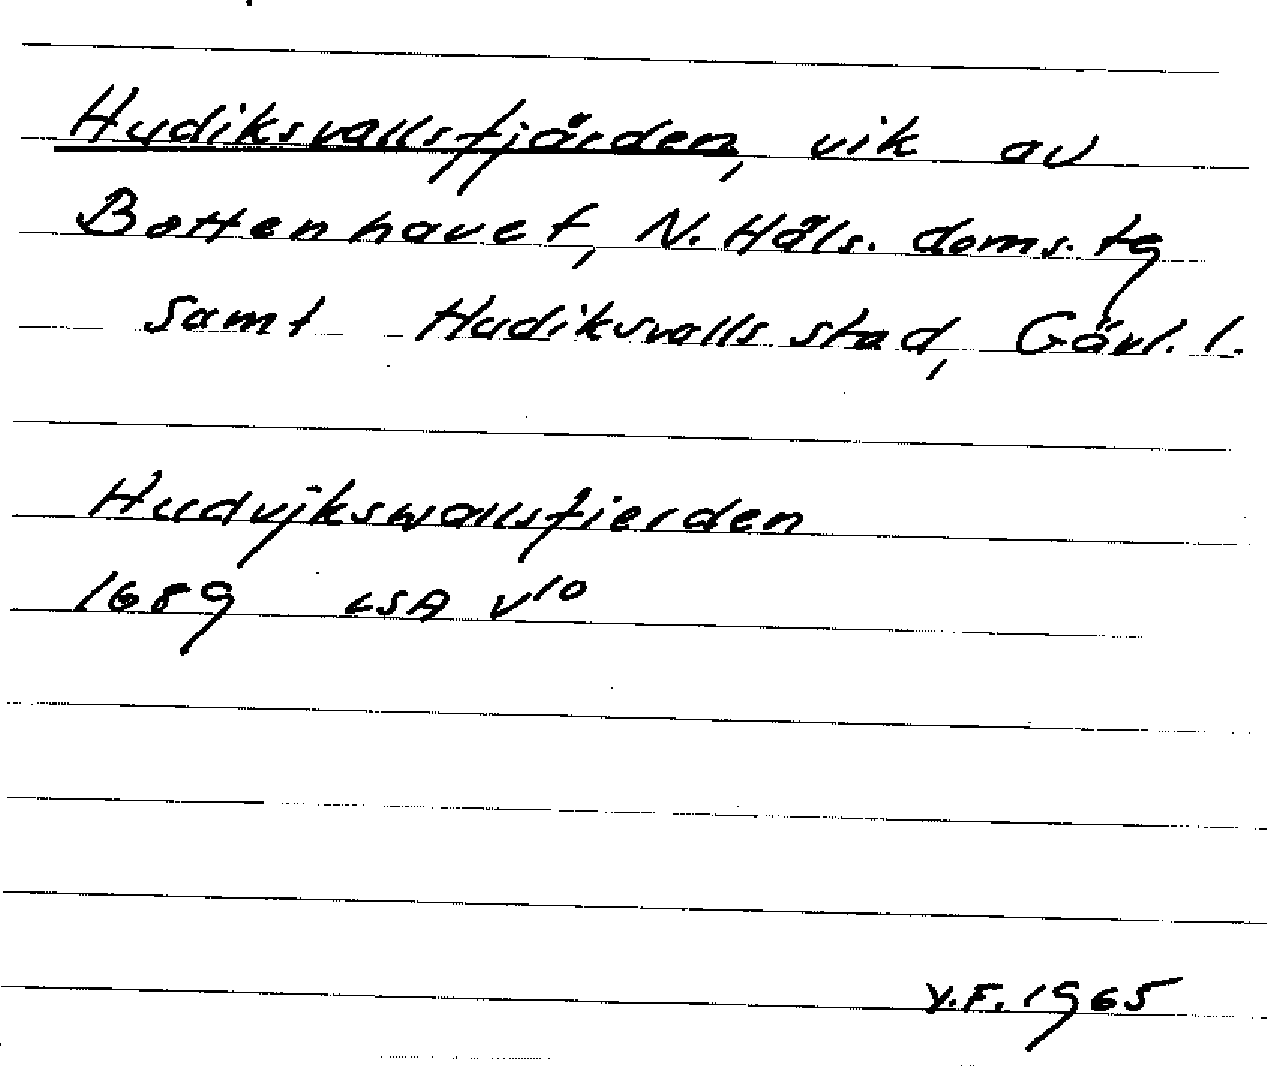 Hudiksvallsfjärden, vik av
Bottenhavet, N. Häls. doms. tg
samt Hudiksvalls stad, Gävl. l.
Hudvjkswallsfierden
1689 LSA V10
Y.F. 1965